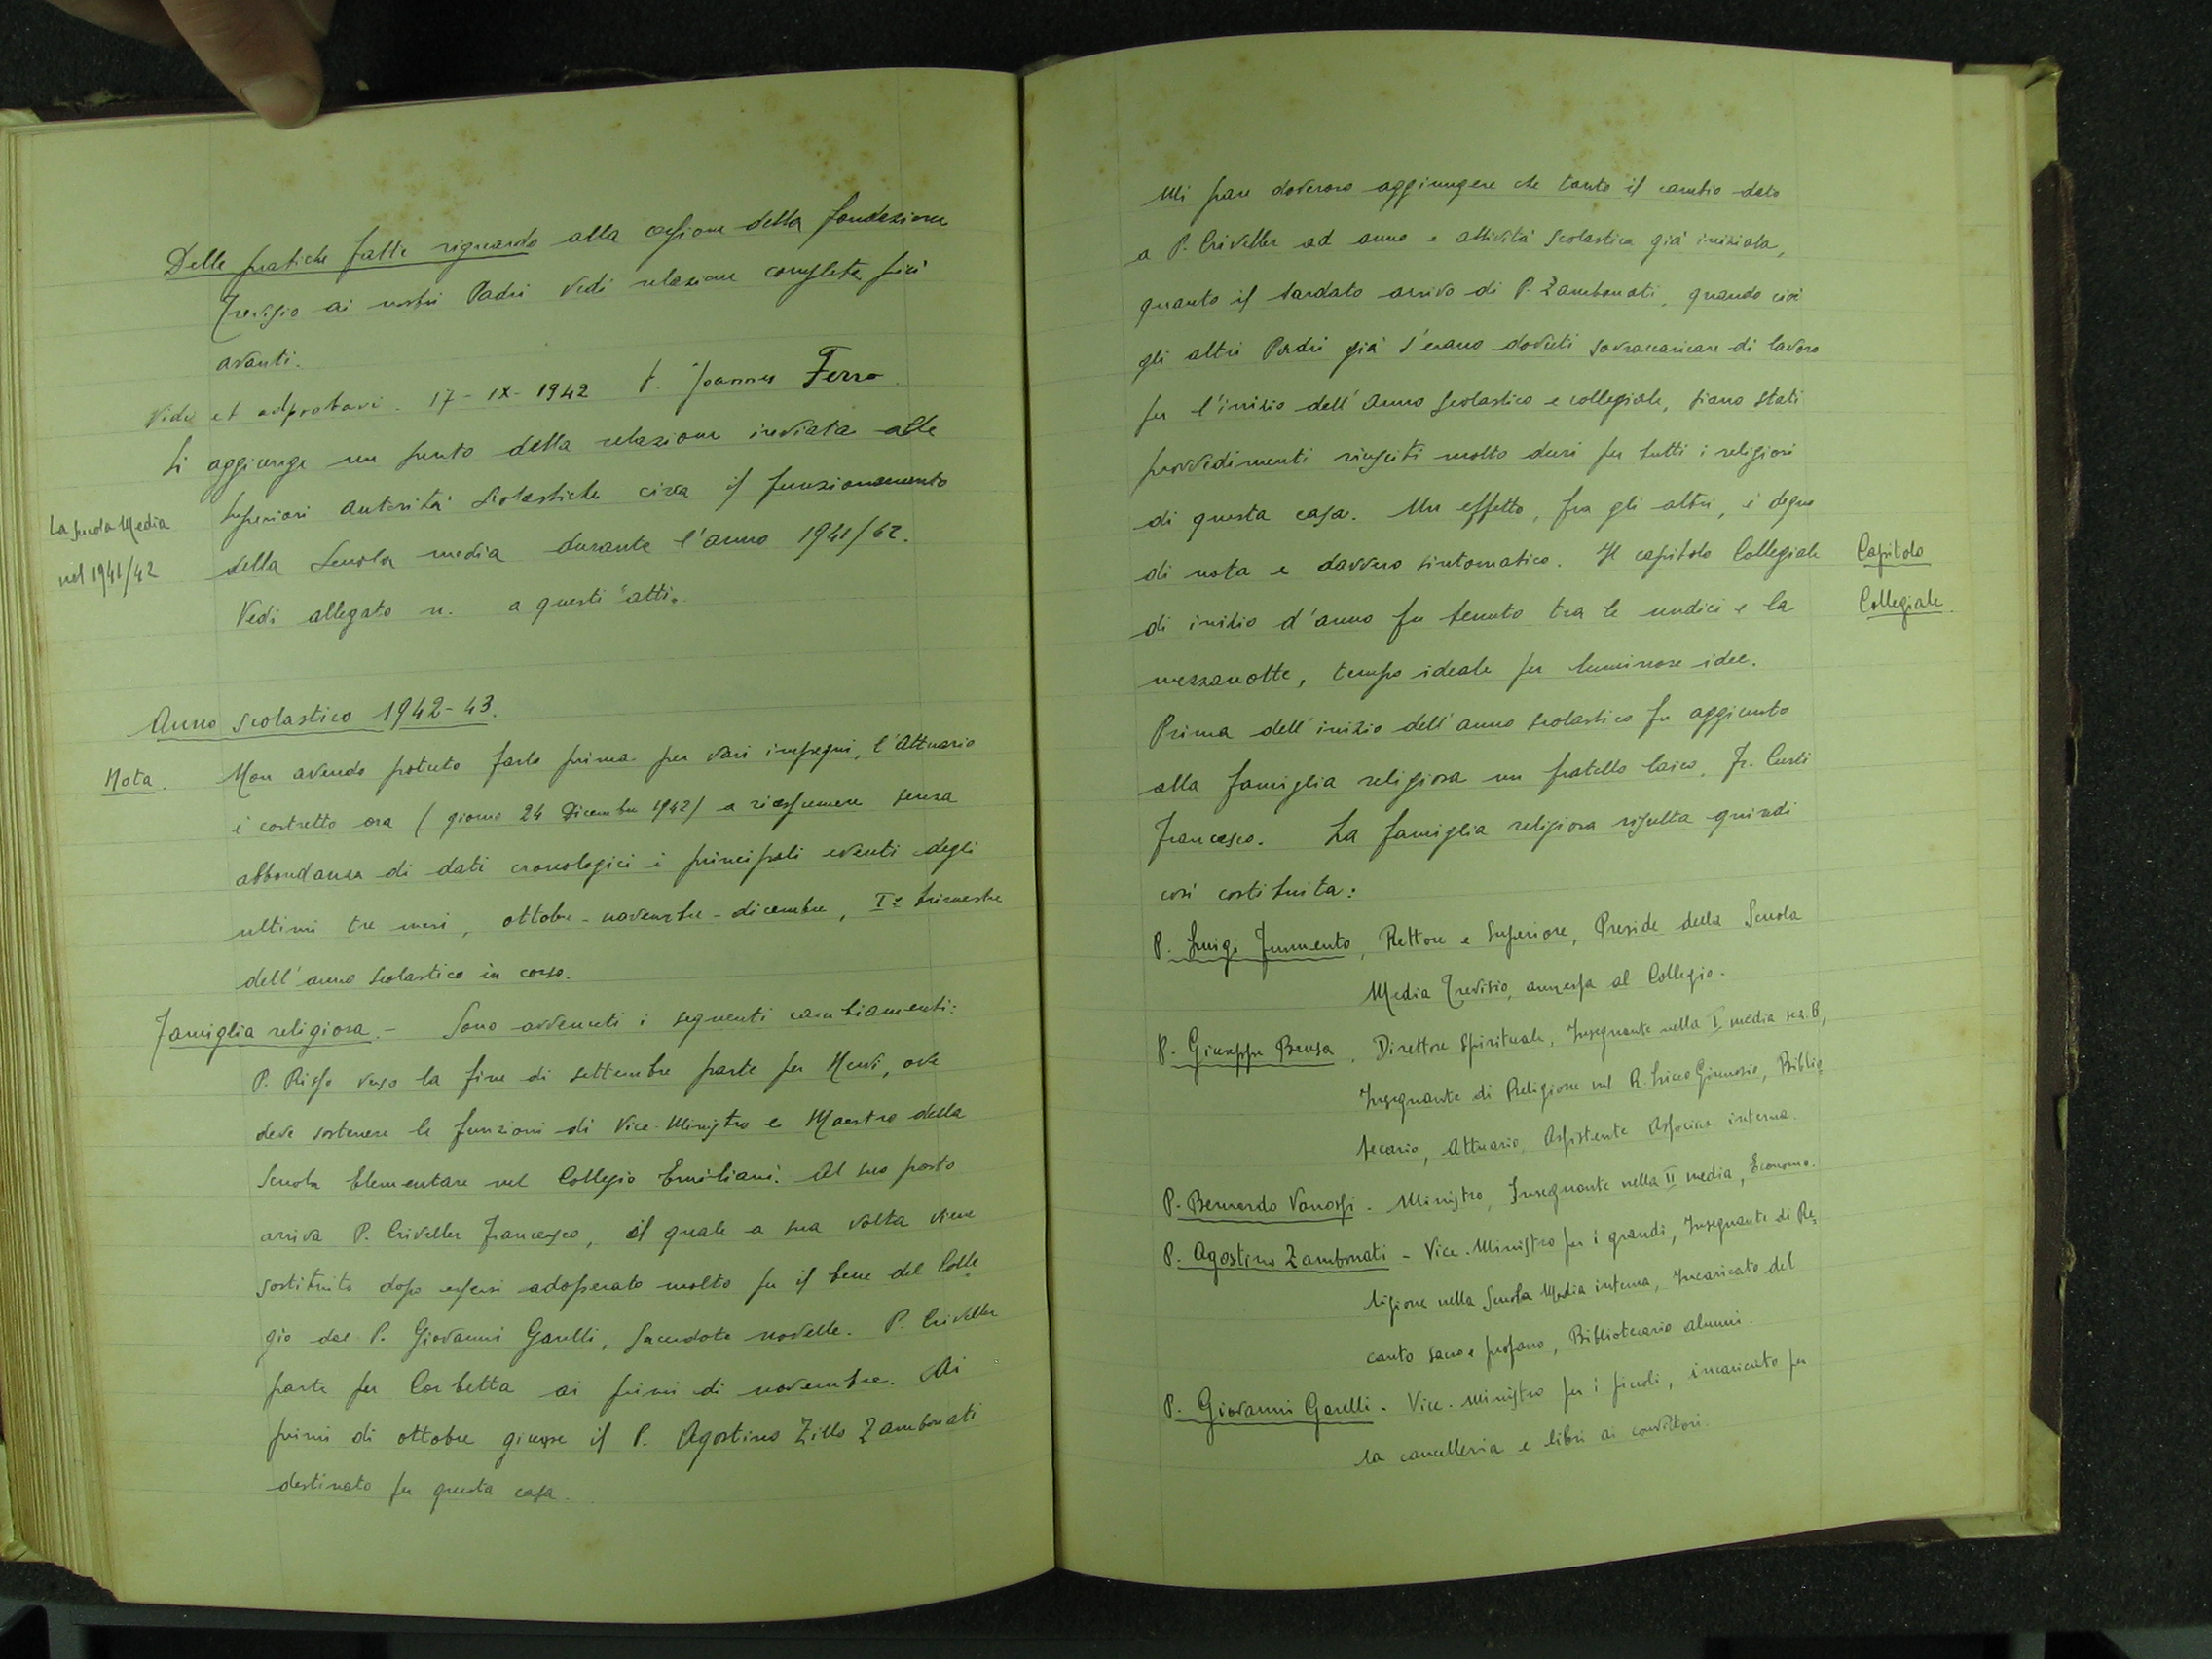 Delle pratiche fatte riguardo alla cessione della fondazione
Trevisio ai nostri Padri vedi relazione completa più
avanti.
Vidi et adprobavi. 17-IX-1942 P. Joannes Ferro.
Si aggiunge un sunto della relazione inviata alle
La Scuola Media
Superiori Autorità Scolastiche circa il funzionamento
nel 1941/42
della Scuola media durante l'anno 1941/42.
Vedi allegato n. a questi "atti".
Anno scolastico 1942-43.
Nota.
Non avendo potuto farlo prima per vari impegni, l'Attuario
è costretto ora (giorno 24 Dicembre 1942) a riassumere senza
abbondanza di dati cronologici i principali eventi degli
ultimi tre mesi, ottobre - novembre - dicembre, I° trimestre
dell'anno scolastico in corso.
Famiglia religiosa. - Sono avvenuti i seguenti cambiamenti:
P. Risso verso la fine di settembre parte per Nervi, ove
deve sostenere le funzioni di Vice-Ministro e Maestro della
Scuola Elementare nel Collegio Emiliani. Al suo posto
arriva P. Criveller Francesco, il quale a sua volta viene
sostituito dopo essersi adoperato molto per il bene del Colle
gio dal P. Giovanni Garelli, Sacerdote novello. P. Criveller
parte per Corbetta ai primi di novembre. Ai
primi di ottobre giunge il P. Agostino Zillo Zambonati
destinato per questa casa.
Mi pare doveroso aggiungere che tanto il cambio dato
a P. Criveller ad anno e attività scolastica già iniziata,
quanto il tardato arrivo di P. Zambonati, quando cioè
gli altri Padri già s'erano dovuti sovraccaricare di lavoro
per l'inizio dell'Anno scolastico e collegiale, siano stati
provvedimenti riusciti molto duri per tutti i religiosi
di questa casa. Un effetto, fra gli altri, è degno
di nota e davvero sintomatico. Il capitolo Collegiale
Capitolo
Collegiale.
di inizio d'anno fu tenuto tra le undici e la
mezzanotte, tempo ideale per luminose idee.
Prima dell'inizio dell'anno scolastico fu aggiunto
alla famiglia religiosa un fratello laico, Fr. Curti
Francesco. La famiglia religiosa risulta quindi
così costituita:
P. Luigi Jumento, Rettore e Superiore, Preside della Scuola
Media Trevisio, annessa al Collegio.
P. Giuseppe Brusa, Direttore Spirituale, Insegnante nella I media sez. B,
Insegnante di Religione nel R. Liceo Ginnasio, Biblio=
tecario, Attuario, Assistente Associaz. interna.
P. Bernardo Vanossi. Ministro, Insegnante nella II media, Economo.
P. Agostino Zambonati - Vice-Ministro per i grandi, Insegnante di Re=
ligione nella Scuola Media interna, Incaricato del
canto sacro e profano, Bibliotecario alunni.
P. Giovanni Garelli. Vice-Ministro per i piccoli, incaricato per
la cancelleria e libri ai convittori.